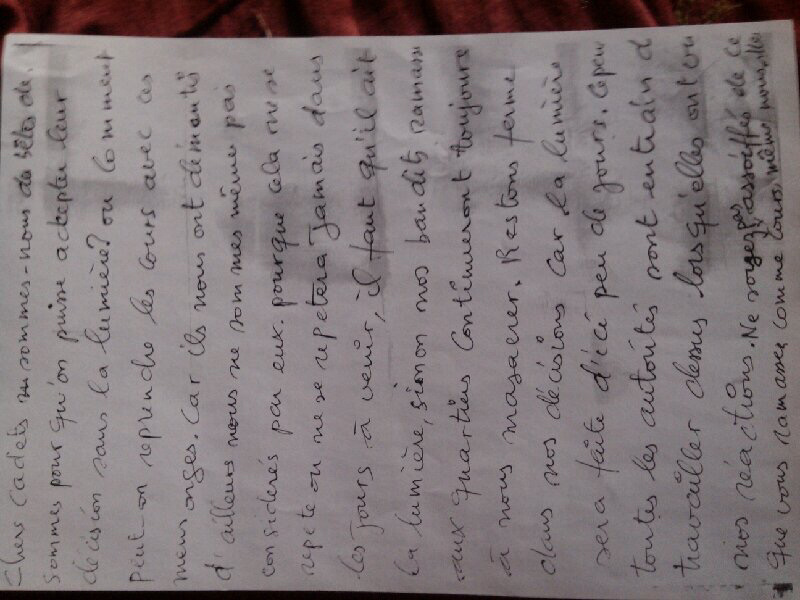 Chers cadets ou sommes-nous de bêtes de
sommes pour qu'on puisse accepter leur
décision sans la lumière? ou comment
peut-on reprendre les cours avec ces
mensonges. Car ils nous ont démontié
d'ailleurs nous ne sommes même pas
considerés par eux. pourque cela ne se
repete ou ne se repetera Jamais dans
les jours à venir, il faut qu'il ait
la lumière, sinon nos bandits ramassé
aux quartiers Continueront toujours
à nous masacrer. Restons ferme
dans nos décisions car la lumière
sera faite d'ici peu de jours. Cepen
toutes les autorités sont entrain d
travailler dessus lorsqu'elles ont vu
nos réactions. Ne soyez pas assoiffés de ce
que vous ramassez comme cours même